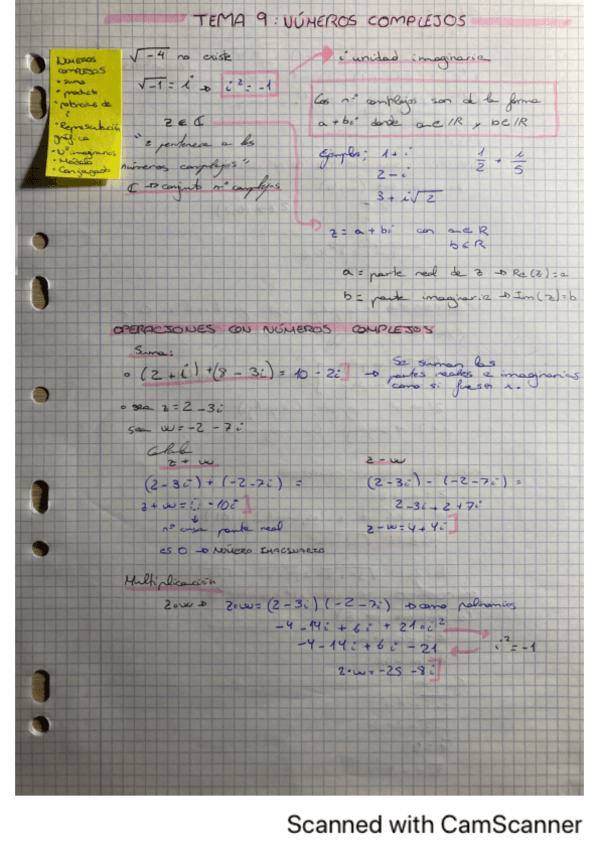 TEMA 9: NÚMEROS COMPLEJOS
NÚMEROS
COMPLEJOS
• suma
• producto
• potencias de
i
• Representación
gráfica
• Nº imaginarios
• Módulo
• Conjugado
√-4 no existe
√-1 = i → i² = -1
i unidad imaginaria
z ∈ ℂ
"z pertenece a los
números complejos"
ℂ → conjunto nº complejos
Los nº complejos son de la forma
a + bi donde a ∈ ℝ y b ∈ ℝ
Ejemplos: 1 + i
2 - i
3 + i√2
1/2 + i/5
z = a + bi con a ∈ ℝ
b ∈ ℝ
a = parte real de z → Re(z) = a
b = parte imaginaria → Im(z) = b
OPERACIONES CON NÚMEROS COMPLEJOS
Suma:
• (2 + i) + (8 - 3i) = 10 - 2i → Se suman las
partes reales e imaginarias
como si fuesen x.
• sea z = 2 - 3i
sea w = -2 - 7i
z + w
(2 - 3i) + (-2 - 7i) =
z + w = - 10i
nº cuya parte real
es 0 → NÚMERO IMAGINARIO
z - w
(2 - 3i) - (-2 - 7i) =
2 - 3i + 2 + 7i
z - w = 4 + 4i
Multiplicación
z·w → z·w = (2 - 3i)(-2 - 7i) → como polinomios
-4 - 14i + 6i + 21·i²
-4 - 14i + 6i - 21
i² = -1
z·w = -25 - 8i
Scanned with CamScanner